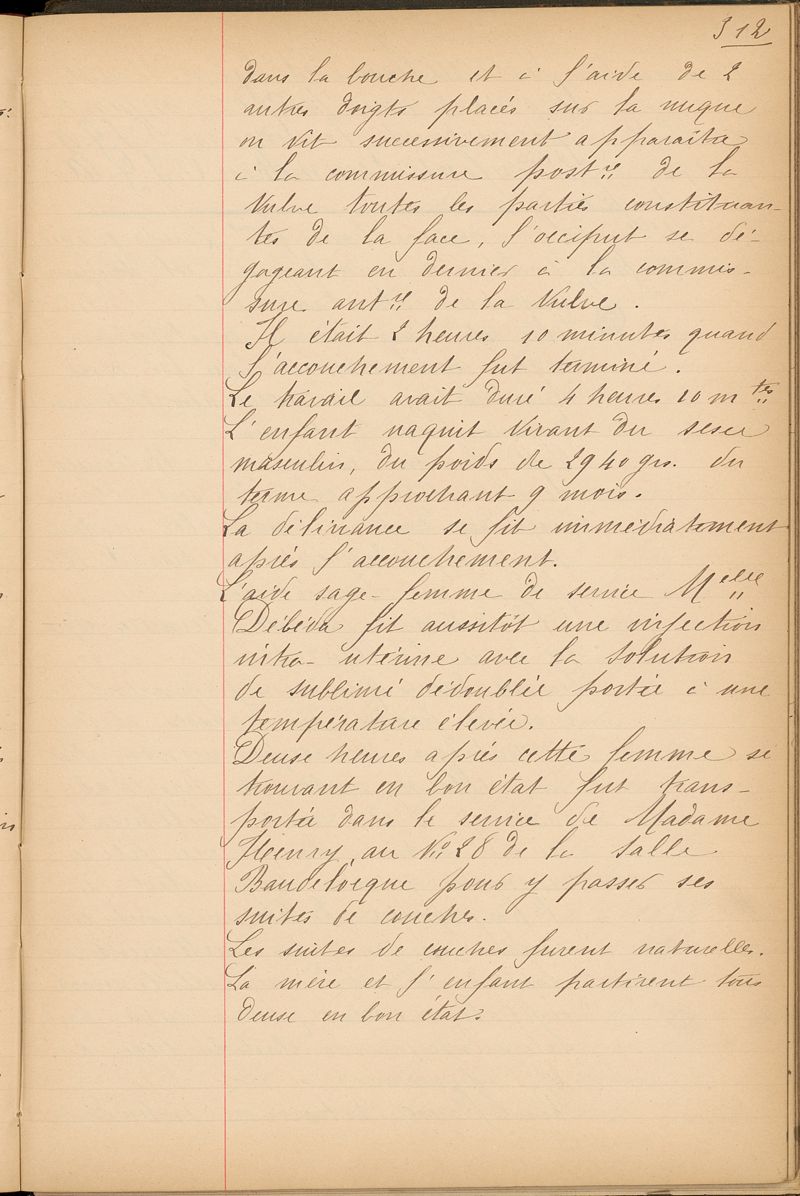 312
dans la bouche et à l'aide de 2
autres doigts placés sur la nuque
on vit successivement apparaître
à la commissure postre de la
vulve toutes les parties constituan-
tes de la face, l'occiput se dé-
gageant en dernier à la commis-
sure antre de la vulve.
Il était 2 heures 10 minutes quand
l'accouchement fut terminé.
Le travail avait duré 4 heures 10 mtes
L'enfant naquit vivant du sexe
masculin, du poids de 2940 grs. du
terme approchant 9 mois.
La délivrance se fit immédiatement
après l'accouchement.
L'aide sage-femme de service Melle
Débéda fit aussitôt une injection
intra-utérine avec la solution
de sublimé dédoublée portée à une
température élevée.
Deux heures après cette femme se
trouvant en bon état fut trans-
portée dans le service de Madame
Henry, au No 28 de la salle
Baudelocque pour y passer ses
suites de couches.
Les suites de couches furent naturelles.
La mère et l'enfant partirent tous
deux en bon état.